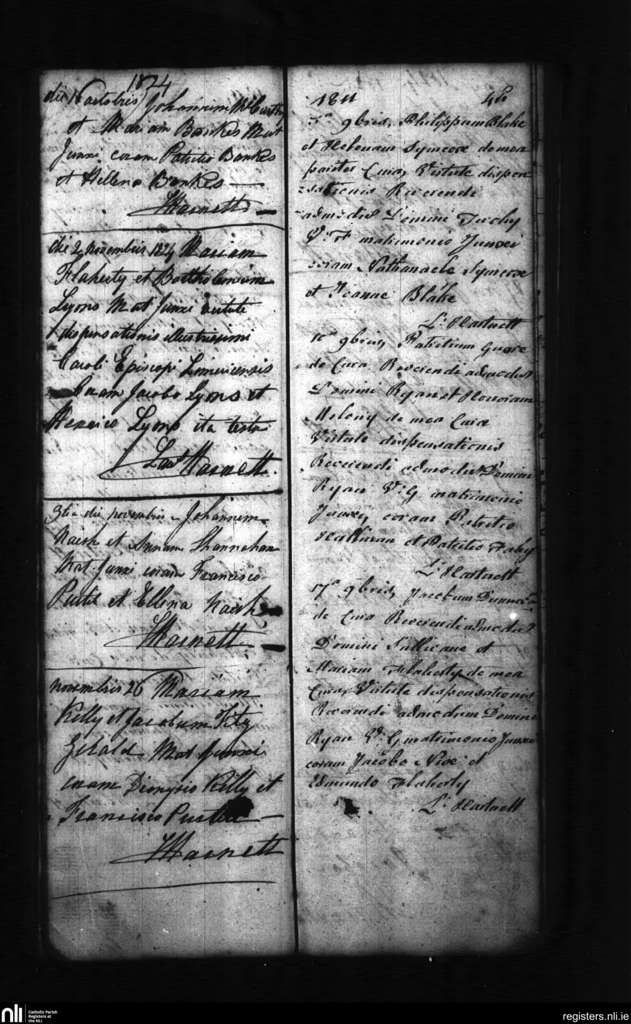 1824
die 16 octobris Johannem McCarthy
et Mariam Bankes Mat
Junxi coram Patritio Bankes
et Hellena Bankes
Harnett
die 2 novembris 1824 Mariam
Flaherty et Bartholomeum
Lyons Mat Junxi virtute
dispensationis illustrissimi
Caroli Episcopi Limericensis
Coram Jacobo Lyons et
Lyons ita testor
Harnett
die novembris Johannem
Naish et Annam Shannahan
Mat Junxi coram Francisco
et Ellena Naish
Harnett
novembris 26 Mariam
Kelly et Jacobum Fitz
Gerald Mat Junxi
coram Dionysio Kelly et
Francisco
Harnett
1811
9bris, Philippum Blake
et Helenam Symcox de mea
Cura, Virtute dispen
sationis Reverendi
admodum Domini Tuohy
V: G matrimonio Junxi
coram Nathanaele Symcox
et Joanne Blake
L: Hartnett
9bris, Patritium
de Cura Reverendi admodum
Domini Ryan et Honoram
Melony de mea Cura
Virtute dispensationis
Reverendi admodum Domini
Ryan V: G matrimonio
Junxi coram Patritio
Halloran et Patritio Fahy
L: Hartnett
17a 9bris, Jacobum
de Cura Reverendi admodum
Domini Sullivane et
Mariam Flaherty de mea
Cura, Virtute dispensationis
Reverendi admodum Domini
Ryan V: G matrimonio Junxi
coram Jacobo et
Edmundo Flaherty
L: Hartnett
nli
Catholic Parish
Registers at
the NLI
registers.nli.ie